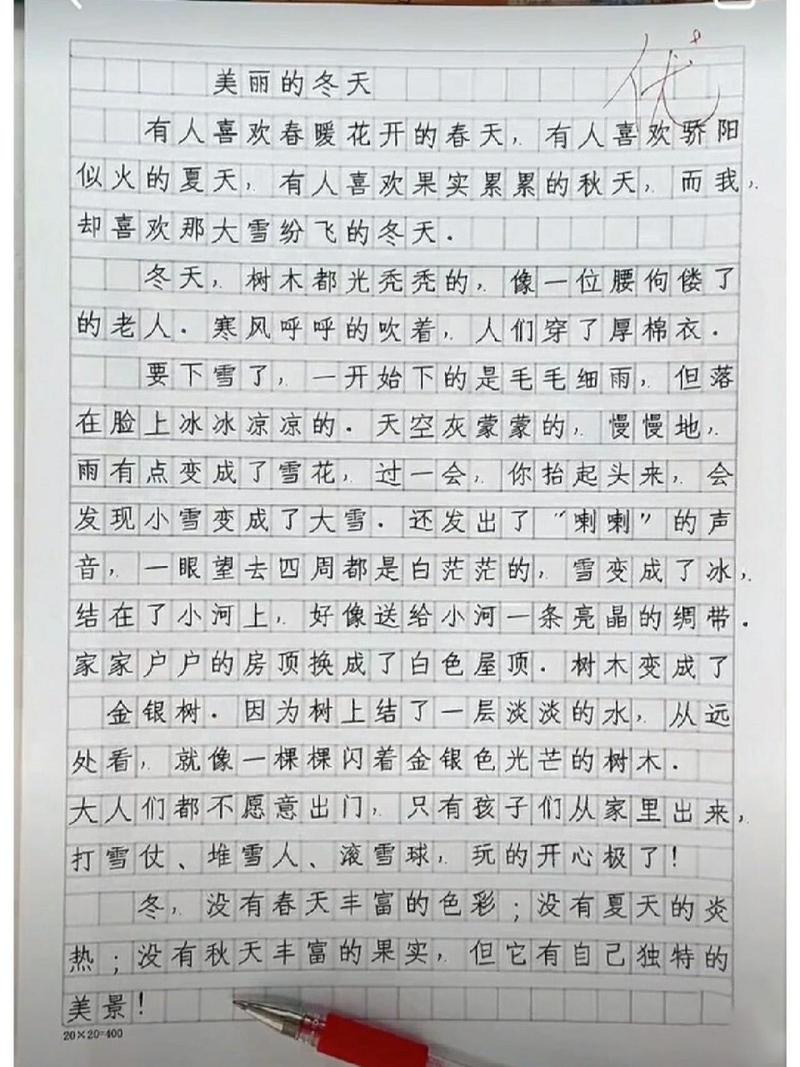 美丽的冬天
优
有人喜欢春暖花开的春天，有人喜欢骄阳
似火的夏天，有人喜欢果实累累的秋天，而我，
却喜欢那大雪纷飞的冬天．
冬天，树木都光秃秃的，像一位腰佝偻了
的老人．寒风呼呼的吹着，人们穿了厚棉衣．
要下雪了，一开始下的是毛毛细雨，但落
在脸上冰冰凉凉的．天空灰蒙蒙的，慢慢地，
雨有点变成了雪花，过一会，你抬起头来，会
发现小雪变成了大雪．还发出了“喇喇”的声
音，一眼望去四周都是白茫茫的，雪变成了冰，
结在了小河上，好像送给小河一条亮晶的绸带．
家家户户的房顶换成了白色屋顶．树木变成了
金银树．因为树上结了一层淡淡的水，从远
处看，就像一棵棵闪着金银色光芒的树木．
大人们都不愿意出门，只有孩子们从家里出来，
打雪仗、堆雪人、滚雪球，玩的开心极了！
冬，没有春天丰富的色彩；没有夏天的炎
热；没有秋天丰富的果实，但它有自己独特的
美景！
20×20=400